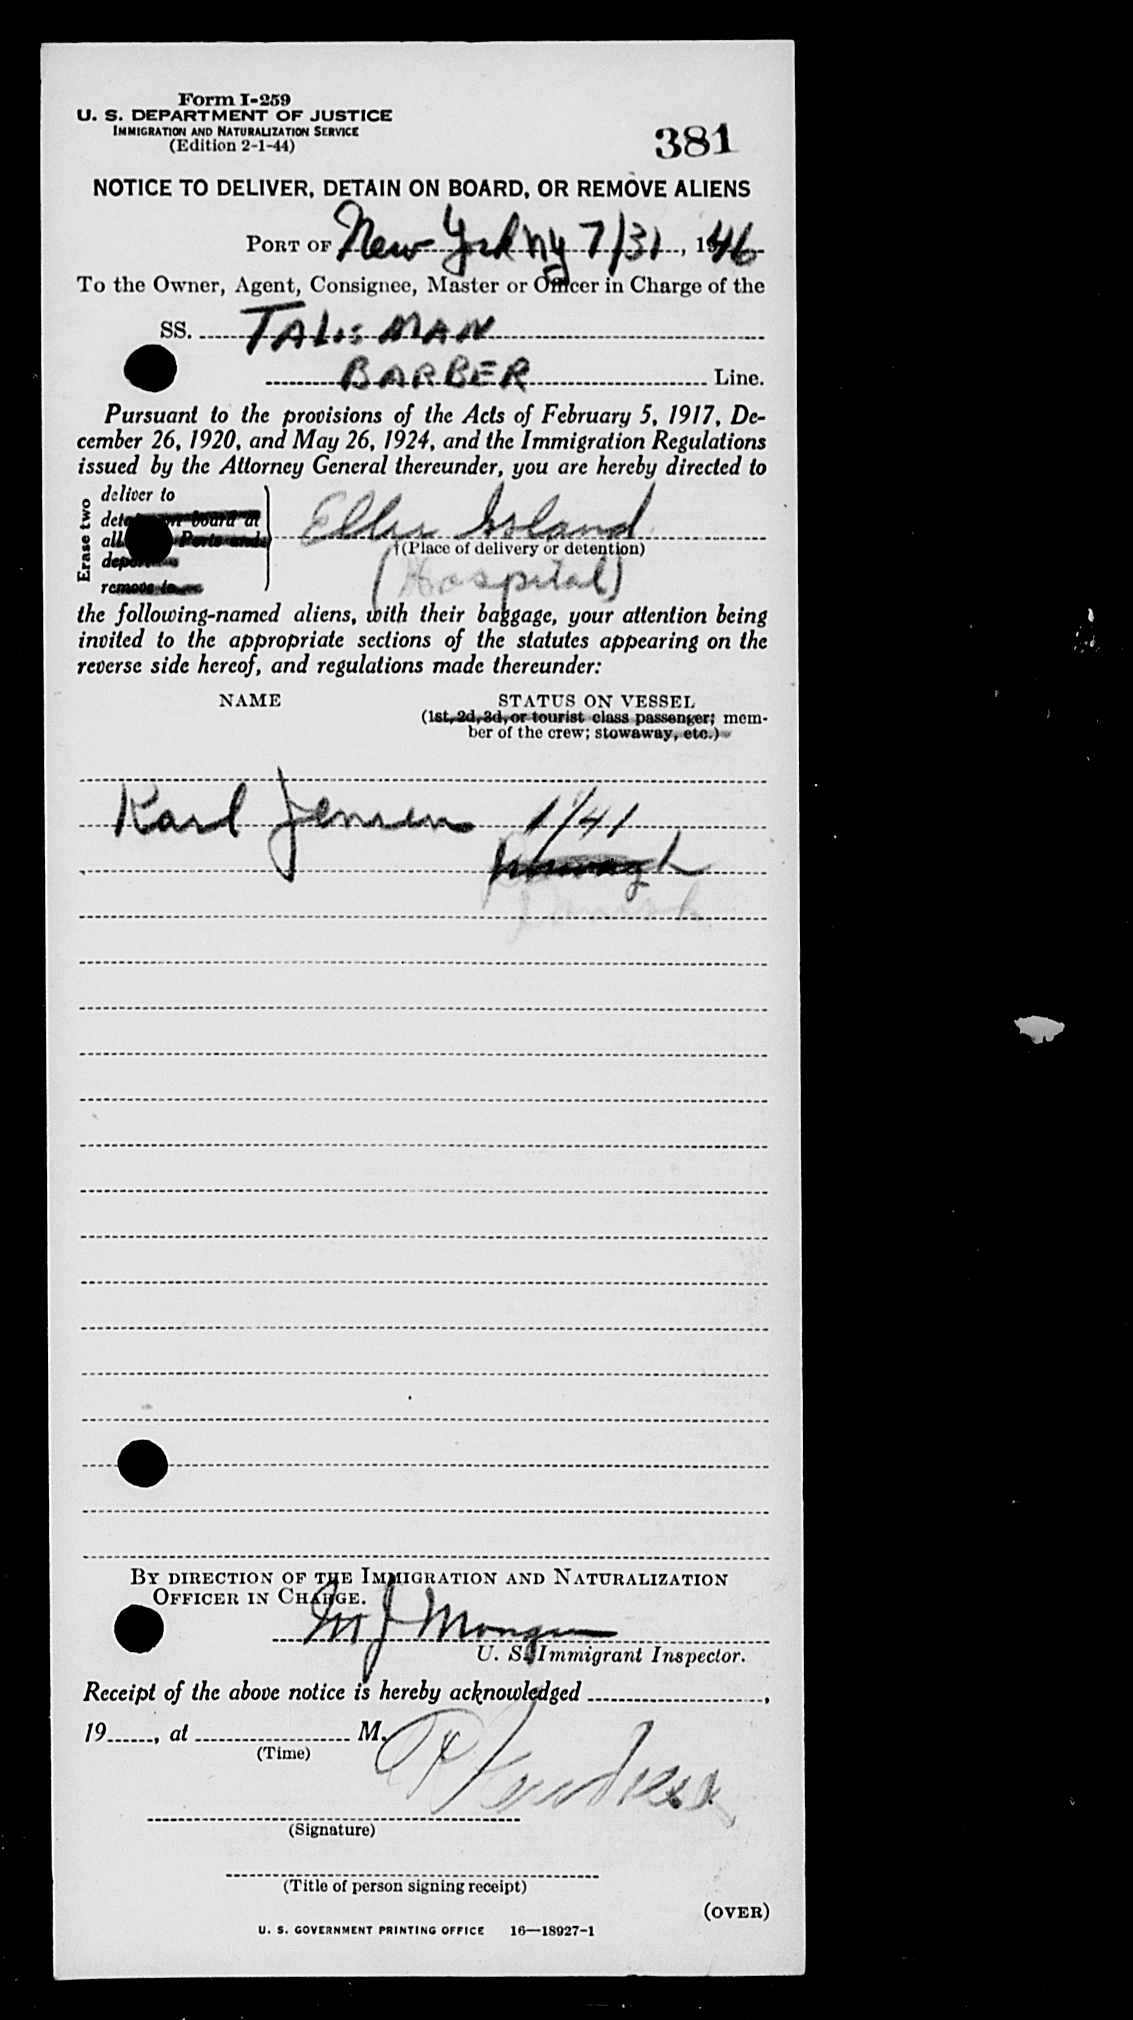 Form I-259
U. S. DEPARTMENT OF JUSTICE
IMMIGRATION AND NATURALIZATION SERVICE
(Edition 2-1-44)
381
NOTICE TO DELIVER, DETAIN ON BOARD, OR REMOVE ALIENS
PORT OF New York NY 7/31, 1946
To the Owner, Agent, Consignee, Master or Officer in Charge of the
SS. TALISMAN
BARBER Line.
Pursuant to the provisions of the Acts of February 5, 1917, De-
cember 26, 1920, and May 26, 1924, and the Immigration Regulations
issued by the Attorney General thereunder, you are hereby directed to
Erase two
deliver to
detain on board at
all Ports and
deport
remove to
Ellis Island
†(Place of delivery or detention)
(Hospital)
the following-named aliens, with their baggage, your attention being
invited to the appropriate sections of the statutes appearing on the
reverse side hereof, and regulations made thereunder:
NAME STATUS ON VESSEL
(1st, 2d, 3d, or tourist class passenger; mem-
ber of the crew; stowaway, etc.)
Karl Jensen 1/41
Danish
BY DIRECTION OF THE IMMIGRATION AND NATURALIZATION
OFFICER IN CHARGE.
M J
U. S. Immigrant Inspector.
Receipt of the above notice is hereby acknowledged ,
19 , at M.
(Time)
(Signature)
(Title of person signing receipt)
(OVER)
U. S. GOVERNMENT PRINTING OFFICE 16—18927-1